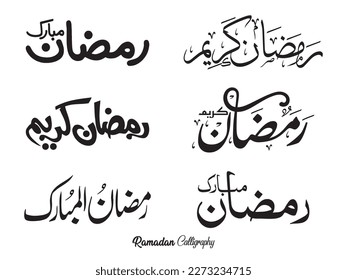 رمضان مبارك
رَمَضَان كَرِيم
رمضان كريم
رَمُضَان كريم
رمضانُ المُبارك
رمضان مبارك
Ramadan Calligraphy
2273234715